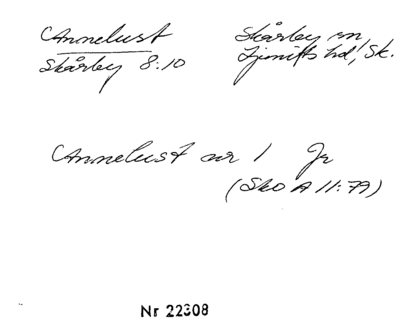 Annelust Skårby sn,
Skårby 8:10 Ljunits hd, Sk.
Annelust nr 1 Jr
(Sko A 11:79)
Nr 22308